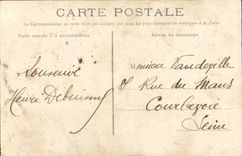 CARTE POSTALE
La Correspondance au recto n'est pas acceptée par tous les pays étrangers
Partie réservée à la correspondance
Adresse du destinataire
Souvenir
Monsieur Vandeville
8 Rue du Mans
Courbevoie
Seine